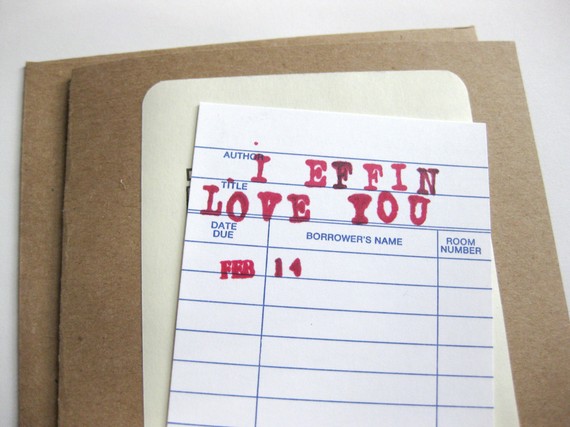 AUTHOR
I EFFIN
TITLE
LOVE YOU
DATE DUE BORROWER'S NAME ROOM NUMBER
FEB 14